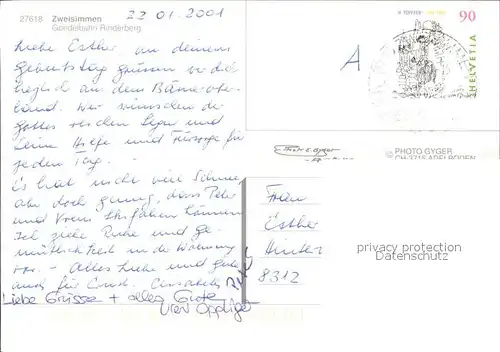 27618 Zweisimmen
Gondelbahn Rinderberg
22.01.2001
Liebe Esther, an deinem
Geburtstag grüssen wir dich
herzlich aus dem Berner Ober-
land. Wir wünschen dir
Gottes reichen Segen und
seine Hilfe und Fürsorge für
jeden Tag.
Es hat nicht viel Schnee,
aber doch genug, dass Peter
und Vreni Skifahren können.
Ich ziehe Ruhe und Ge-
mütlichkeit in der Wohnung
vor. - Alles Liebe und Gute
auch für Ernst. Elisabeth
Liebe Grüsse + alles Gute
Vreni Oppliger
Peter
A
R. TÖPFFER
90
HELVETIA
© PHOTO GYGER
CH-3715 ADELBODEN
Frau
Esther
8312
privacy protection
Datenschutz